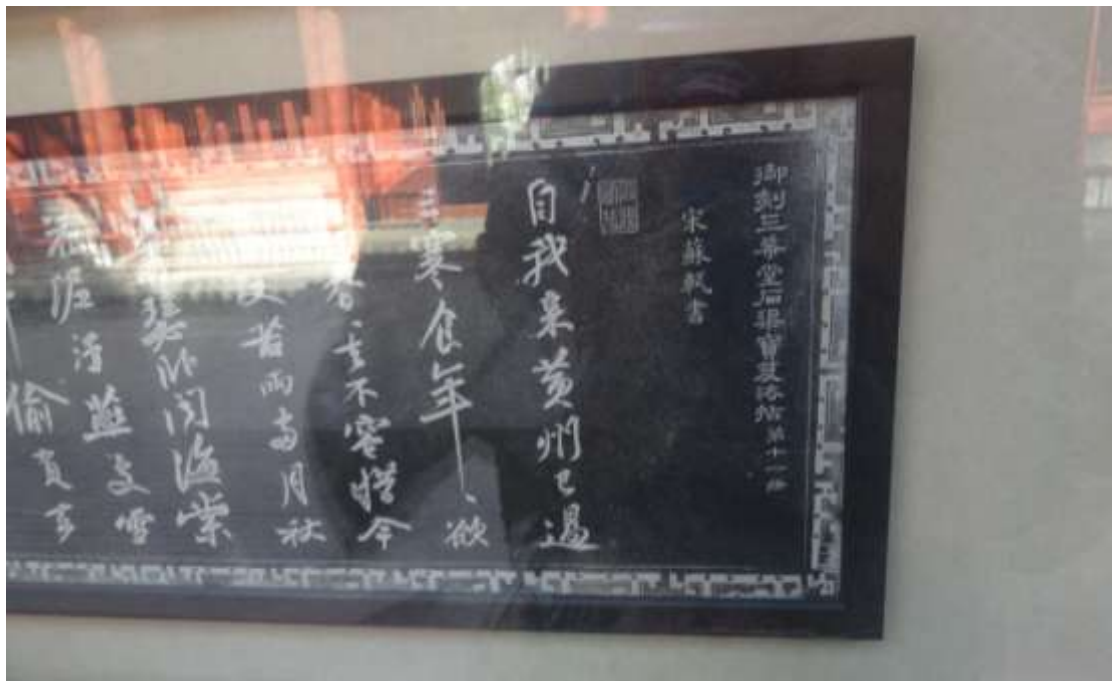 御刻三希堂石渠寶笈法帖第十一冊
宋蘇軾書
自我来黄州已過
三寒食年、欲
春去不容惜今
又苦雨兩月秋
蕭瑟卧聞海棠
花泥汙燕支雪
偷負去